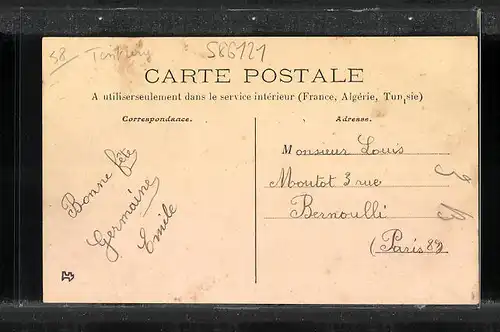 58
586121
CARTE POSTALE
A utiliserseulement dans le service intérieur (France, Algérie, Tunisie)
Correspondance.
Adresse.
Bonne fête
Germaine
Emile
Monsieur Louis
Moutot 3 rue
Bernoulli
(Paris 8e)